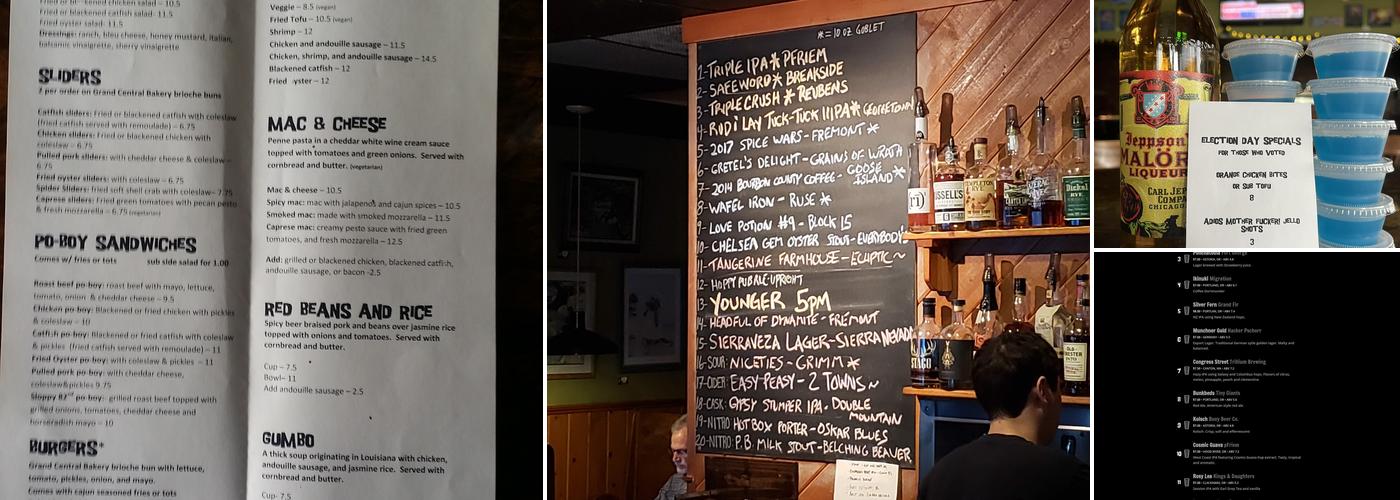 Fried or blackened chicken salad - 10.5
Fried or blackened catfish salad- 11.5
Fried oyster salad- 11.5
Dressings: ranch, bleu cheese, honey mustard, italian,
balsamic vinaigrette, sherry vinaigrette
SLIDERS
2 per order on Grand Central Bakery brioche buns
Catfish sliders: fried or blackened catfish with coleslaw
(fried catfish served with remoulade) – 6.75
Chicken sliders: fried or blackened chicken with
coleslaw – 6.75
Pulled pork sliders: with cheddar cheese & coleslaw –
6.75
Fried oyster sliders: with coleslaw – 6.75
Spider Sliders: fried soft shell crab with coleslaw– 7.75
Caprese sliders: Fried green tomatoes with pecan pesto
& fresh mozzarella – 6.75 (vegetarian)
PO-BOY SANDWICHES
Comes w/ fries or tots sub side salad for 1.00
Roast beef po-boy: roast beef with mayo, lettuce,
tomato, onion & cheddar cheese – 9.5
Chicken po-boy: Blackened or fried chicken with pickles
& coleslaw – 10
Catfish po-boy: Blackened or fried catfish with coleslaw
& pickles (fried catfish served with remoulade) – 11
Fried Oyster po-boy: with coleslaw & pickles – 11
Pulled pork po-boy: with cheddar cheese,
coleslaw&pickles 9.75
Sloppy 82nd po-boy: grilled roast beef topped with
grilled onions, tomatoes, cheddar cheese and
horseradish mayo – 10
BURGERS*
Grand Central Bakery brioche bun with lettuce,
tomato, pickles, onion, and mayo.
Comes with cajun seasoned fries or tots
Veggie – 8.5 (vegan)
Fried Tofu – 10.5 (vegan)
Shrimp – 12
Chicken and andouille sausage – 11.5
Chicken, shrimp, and andouille sausage – 14.5
Blackened catfish – 12
Fried oyster – 12
MAC & CHEESE
Penne pasta in a cheddar white wine cream sauce
topped with tomatoes and green onions. Served with
cornbread and butter. (vegetarian)
Mac & cheese – 10.5
Spicy mac: mac with jalapenos and cajun spices – 10.5
Smoked mac: made with smoked mozzarella – 11.5
Caprese mac: creamy pesto sauce with fried green
tomatoes, and fresh mozzarella – 12.5
Add: grilled or blackened chicken, blackened catfish,
andouille sausage, or bacon -2.5
RED BEANS AND RICE
Spicy beer braised pork and beans over jasmine rice
topped with onions and tomatoes. Served with
cornbread and butter.
Cup – 7.5
Bowl– 11
Add andouille sausage – 2.5
GUMBO
A thick soup originating in Louisiana with chicken,
andouille sausage, and jasmine rice. Served with
cornbread and butter.
Cup- 7.5
*=10 OZ GOBLET
1-TRIPLE IPA* PFRIEM
2- SAFEWORD* BREAKSIDE
3- TRIPLE CRUSH * REUBENS
4- RODI LAY TUCK-TUCK IIIPA* GEORGETOWN
5-2017 SPICE WARS-FREMONT *
6- GRETEL'S DELIGHT-GRAINS OF WRATH
7- 2014 BOURBON COUNTY COFFEE- GOOSE
ISLAND*
8- WAFEL IRON - RUSE *
9- LOVE POTION #9 - BLOCK 15
10- CHELSEA GEM OYSTER STOUT-EVERYBODY'S
11-TANGERINE FARMHOUSE-ECLIPTIC~
12- HOPPY PUBALE-UPRIGHT
13- YOUNGER 5PM
14-HEADFUL OF DYNAMITE-FREMONT
15-SIERRAVEZA LAGER-SIERRA NEVADA
16-SOUR: NICETIES-GRIMM *
17-CIDER: EASY PEASY-2 TOWNS~
18-CASK: GYPSY STUMPER IPA-DOUBLE
MOUNTAIN
19-NITRO HOTBOX PORTER-OSKAR BLUES
20-NITRO: P.B. MILK STOUT-BELCHING BEAVER
Jeppson
MALÖR
LIQUEUR
CARL JEP
COMPA
CHICAGO
ELECTION DAY SPECIALS
FOR THOSE WHO VOTED
ORANGE CHICKEN BITES
OR SUB TOFU
8
ADIOS MOTHER FUCKER! JELLO
SHOTS
3
3
4 Ikinuki Migration
Coffee Dortmunder
5 Silver Fern Grand Fir
NZ IPA using New Zealand hops.
6 Munchner Gold Hacker Pschorr
7 Congress Street Trillium Brewing
8 Bunkbeds Tiny Giants
9 Kolsch Buoy Beer Co.
10 Cosmic Guava pFriem
11 Rosy Lee Kings & Daughters